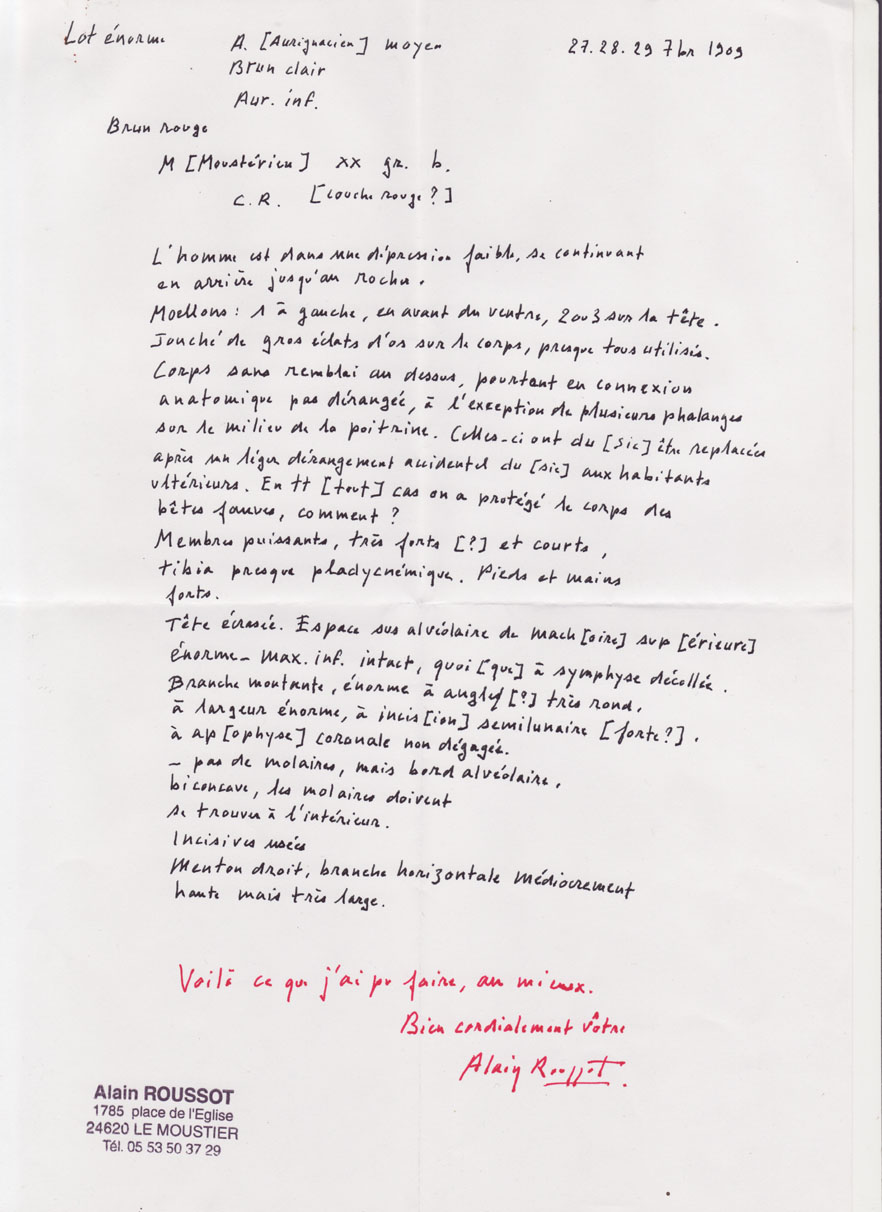 Lot énorme A. [Aurignacien] moyen 27.28.29 7br 1909
Brun clair
Aur. inf.
Brun rouge
M [Moustérien] xx gr. b.
C.R. [couche rouge ?]
L'homme est dans une dépression faible, se continuant
en arrière jusqu'au rocher.
Moellons : 1 à gauche, en avant du ventre, 2 ou 3 sur la tête.
Jonché de gros éclats d'os sur le corps, presque tous utilisés.
Corps sans remblai au dessus, pourtant en connexion
anatomique pas dérangée, à l'exception de plusieurs phalanges
sur le milieu de la poitrine. Celles-ci ont du [sic] être replacées
après un léger dérangement accidentel du [sic] aux habitants
ultérieurs. En tt [tout] cas on a protégé le corps des
bêtes fauves, comment ?
Membres puissants, très forts [?] et courts,
tibia presque pladycnémique. Pieds et mains
forts.
Tête écrasée. Espace sus alvéolaire de mach[oire] sup[érieure]
énorme - max. inf. intact, quoi[que] à symphyse décollée.
Branche montante, énorme à angle [?] très rond,
à largeur énorme, à incis[ion] semilunaire [forte?].
à ap[ophyse] coronale non dégagée.
- pas de molaires, mais bord alvéolaire,
biconcave, les molaires doivent
se trouver à l'intérieur.
Incisives usées
Menton droit, branche horizontale médiocrement
haute mais très large.
Voilà ce que j'ai pu faire, au mieux.
Bien cordialement vôtre
Alain Roussot.
Alain ROUSSOT
1785 place de l'Eglise
24620 LE MOUSTIER
Tél. 05 53 50 37 29